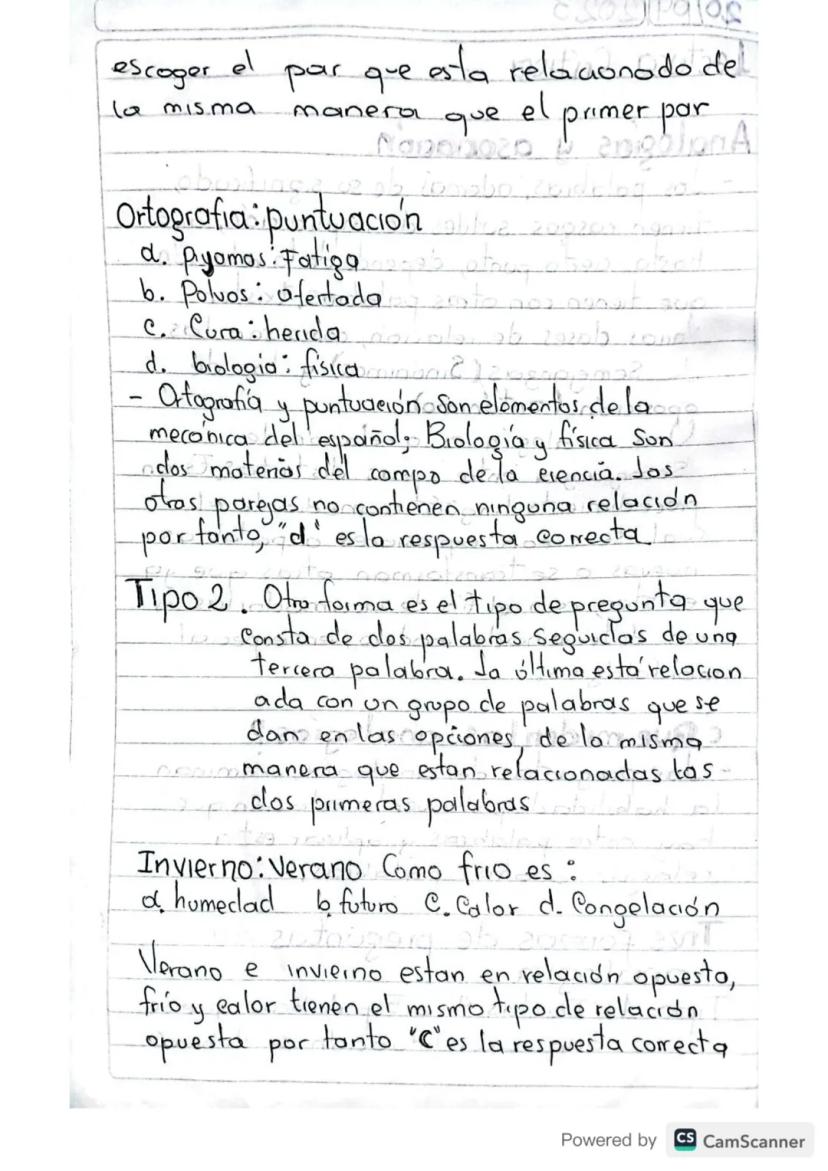 escoger el par que esta relacionado de
la misma manera que el primer par
Ortografia: puntuación
a. Piyamas: Fatiga
b. Polvos: ofertada
c. Cura: herida
d. biologia: física
- Ortografía y puntuación son elementos de la
mecánica del español; Biología y física son
dos materias del campo de la ciencia. Las
otras parejas no contienen ninguna relación
por tanto, "d" es la respuesta correcta
Tipo 2. Otra forma es el tipo de pregunta que
consta de dos palabras seguidas de una
tercera palabra. La última está relacion
ada con un grupo de palabras que se
dan en las opciones, de la misma
manera que estan relacionadas las
dos primeras palabras
Invierno: Verano Como frio es:
a. humedad b. futuro C. Calor d. Congelación
Verano e invierno estan en relación opuesta,
frío y calor tienen el mismo tipo de relación
opuesta por tanto "C" es la respuesta correcta
Powered by CS CamScanner